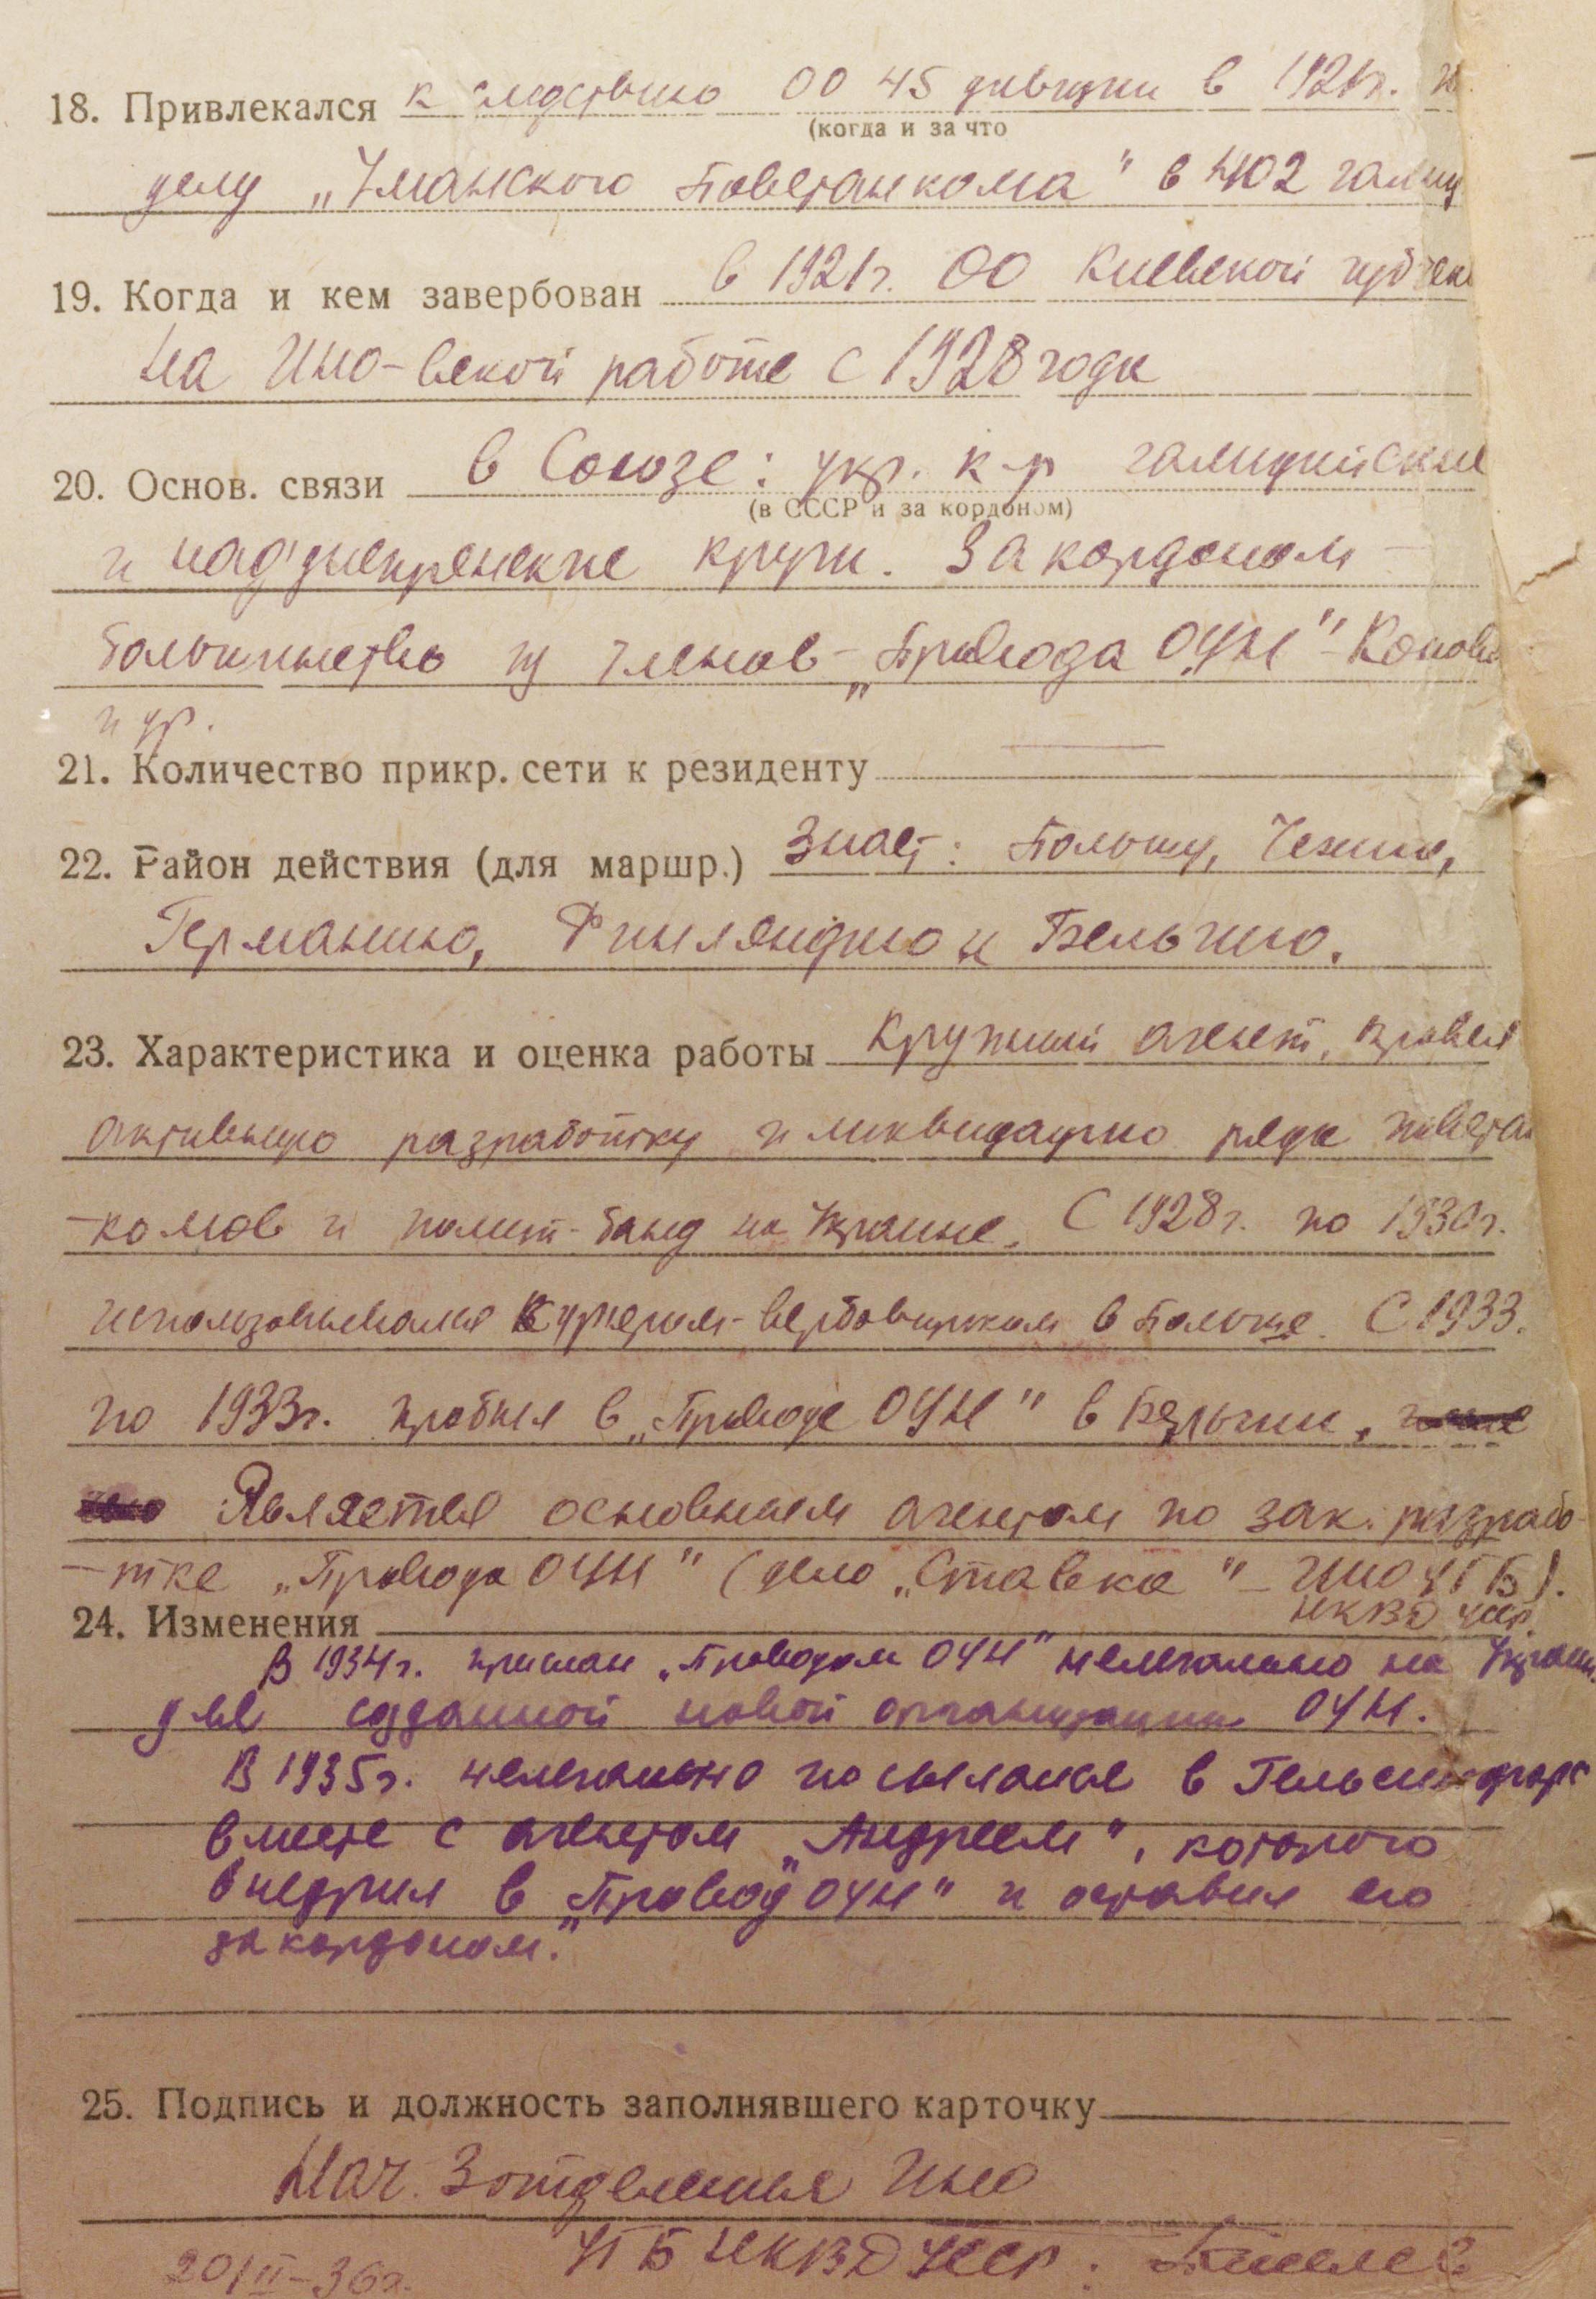 18. Привлекался к следствию ОО 45 дивизии в 1921г. по
(когда и за что
делу „Уманского Повстанкома" в 402 галиц
19. Когда и кем завербован в 1921г. ОО Киевской губчека
на ИНО-вской работе с 1928 года
20. Основ. связи в Союзе: укр. к-р галицийские
(в СССР и за кордоном)
и над'днепрянские круги. За кордоном –
большинство из членов – „Провода ОУН" – Коновал
и др.
21. Количество прикр. сети к резиденту —
22. Район действия (для маршр.) Знает: Польшу, Чехию,
Германию, Финляндию и Бельгию.
23. Характеристика и оценка работы Крупный агент, провел
активную разработку и ликвидацию ряда повстан
–комов и полит-банд на Украине. С 1928г. по 1930г.
использовывался курьером-вербовщиком в Польше. С 1933.
по 1933г. пробыл в „Проводе ОУН" в Бельгии,
Является основным агентом по зак. разрабо-
–тке „Провода ОУН" (дело „Ставка" – ИНО УГБ).
НКВД УССР
24. Изменения
В 1934г. прислан „Проводом ОУН" нелегально на Украин.
для созданной новой организации ОУН.
В 1935г. нелегально посылался в Гельсингфорс
вместе с агентом „Андреем", которого
внедрил в „Провод ОУН" и оставил его
за кордоном."
25. Подпись и должность заполнявшего карточку
Нач. 3 отделения ИНО
УГБ НКВД УССР:
20/II–36г.